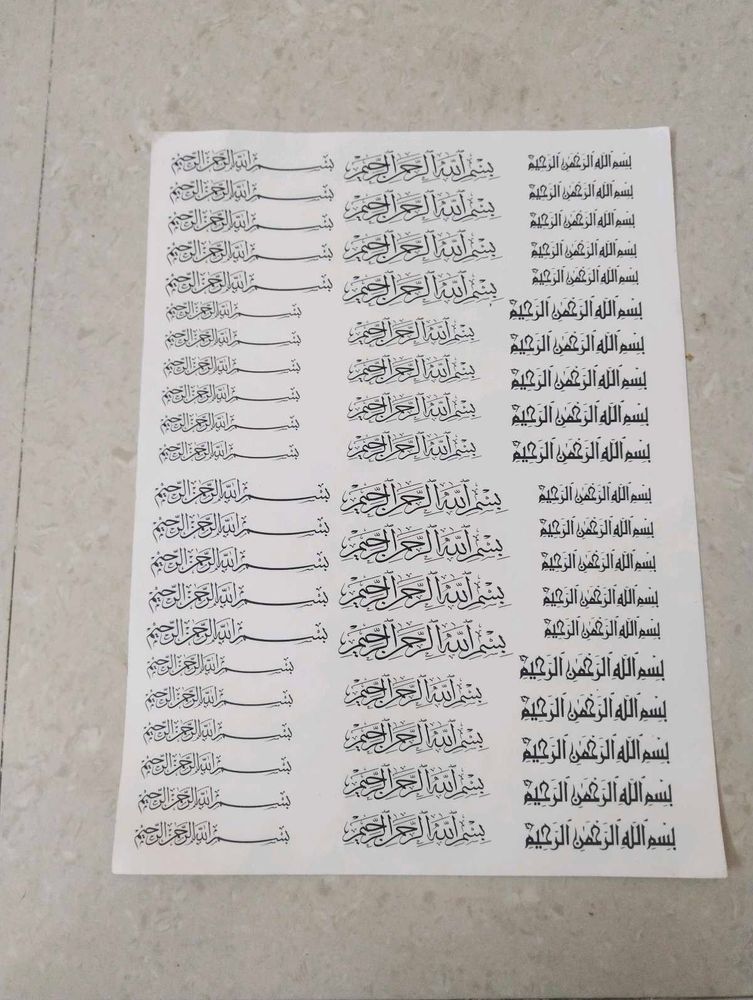 بسم الله الرحمن الرحيم
بسم الله الرحمن الرحيم
بسم الله الرحمن الرحيم
بسم الله الرحمن الرحيم
بسم الله الرحمن الرحيم
بسم الله الرحمن الرحيم
بسم الله الرحمن الرحيم
بسم الله الرحمن الرحيم
بسم الله الرحمن الرحيم
بسم الله الرحمن الرحيم
بسم الله الرحمن الرحيم
بسم الله الرحمن الرحيم
بسم الله الرحمن الرحيم
بسم الله الرحمن الرحيم
بسم الله الرحمن الرحيم
بسم الله الرحمن الرحيم
بسم الله الرحمن الرحيم
بسم الله الرحمن الرحيم
بسم الله الرحمن الرحيم
بسم الله الرحمن الرحيم
بسم الله الرحمن الرحيم
بسم الله الرحمن الرحيم
بسم الله الرحمن الرحيم
بسم الله الرحمن الرحيم
بسم الله الرحمن الرحيم
بسم الله الرحمن الرحيم
بسم الله الرحمن الرحيم
بسم الله الرحمن الرحيم
بسم الله الرحمن الرحيم
بسم الله الرحمن الرحيم
بسم الله الرحمن الرحيم
بسم الله الرحمن الرحيم
بسم الله الرحمن الرحيم
بسم الله الرحمن الرحيم
بسم الله الرحمن الرحيم
بسم الله الرحمن الرحيم
بسم الله الرحمن الرحيم
بسم الله الرحمن الرحيم
بسم الله الرحمن الرحيم
بسم الله الرحمن الرحيم
بسم الله الرحمن الرحيم
بسم الله الرحمن الرحيم
بسم الله الرحمن الرحيم
بسم الله الرحمن الرحيم
بسم الله الرحمن الرحيم
بسم الله الرحمن الرحيم
بسم الله الرحمن الرحيم
بسم الله الرحمن الرحيم
بسم الله الرحمن الرحيم
بسم الله الرحمن الرحيم
بسم الله الرحمن الرحيم
بسم الله الرحمن الرحيم
بسم الله الرحمن الرحيم
بسم الله الرحمن الرحيم
بسم الله الرحمن الرحيم
بسم الله الرحمن الرحيم
بسم الله الرحمن الرحيم
بسم الله الرحمن الرحيم